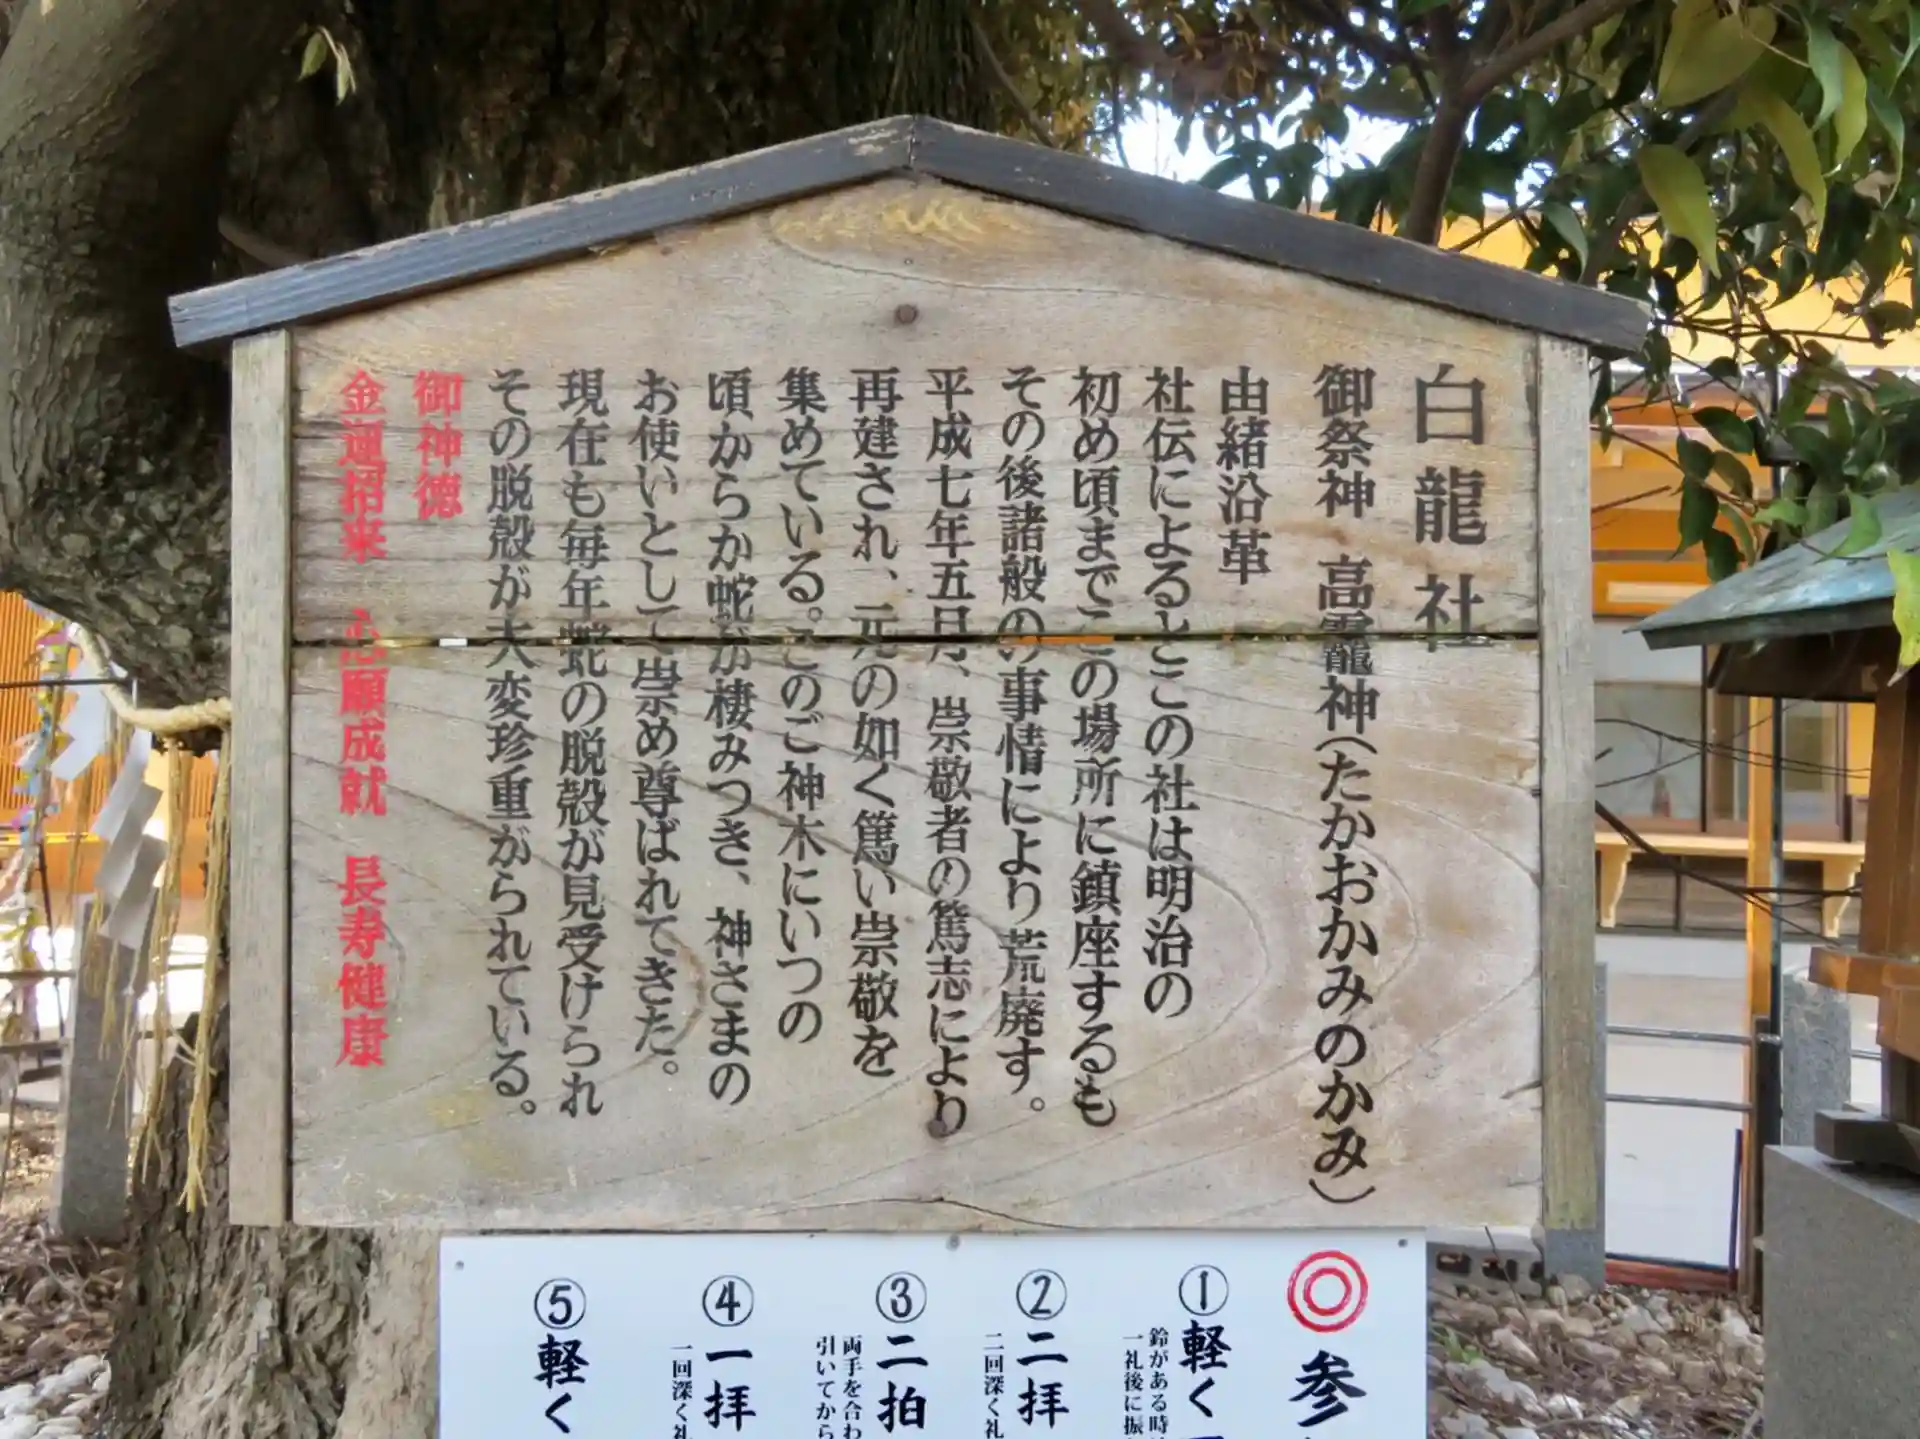 白龍社
御祭神 高龗神(たかおかみのかみ)
由緒沿革
社伝によるとこの社は明治の
初め頃までこの場所に鎮座するも
その後諸般の事情により荒廃す。
平成七年五月、崇敬者の篤志により
再建され、元の如く篤い崇敬を
集めている。このご神木にいつの
頃からか蛇が棲みつき、神さまの
お使いとして崇め尊ばれてきた。
現在も毎年蛇の脱殻が見受けられ
その脱殻が大変珍重がられている。
御神徳
金運招来 心願成就 長寿健康
◎参
①軽く一
鈴がある時
一礼後に振
②二拝
二回深く礼
③二拍
両手を合わ
引いてから
④一拝
一回深く礼
⑤軽く